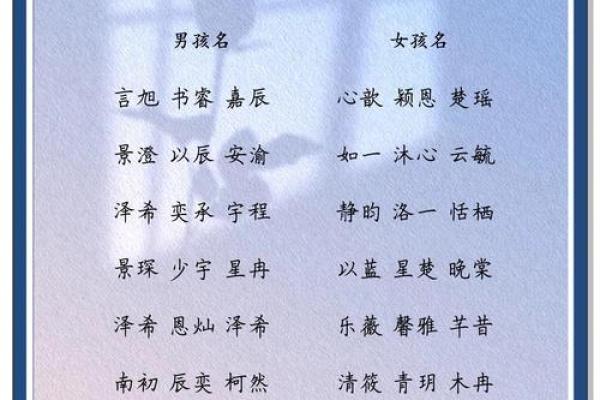 男孩名 女孩名
言旭 书睿 嘉辰 心歆 颖恩 楚瑶
景澄 以辰 安渝 如一 沐心 云毓
泽希 奕承 宇程 静昀 洛一 恬栖
景琛 少宇 星冉 以蓝 星楚 晚棠
泽希 恩灿 泽希 乐薇 馨雅 芊昔
南初 辰奕 柯然 清筱 青玥 木冉